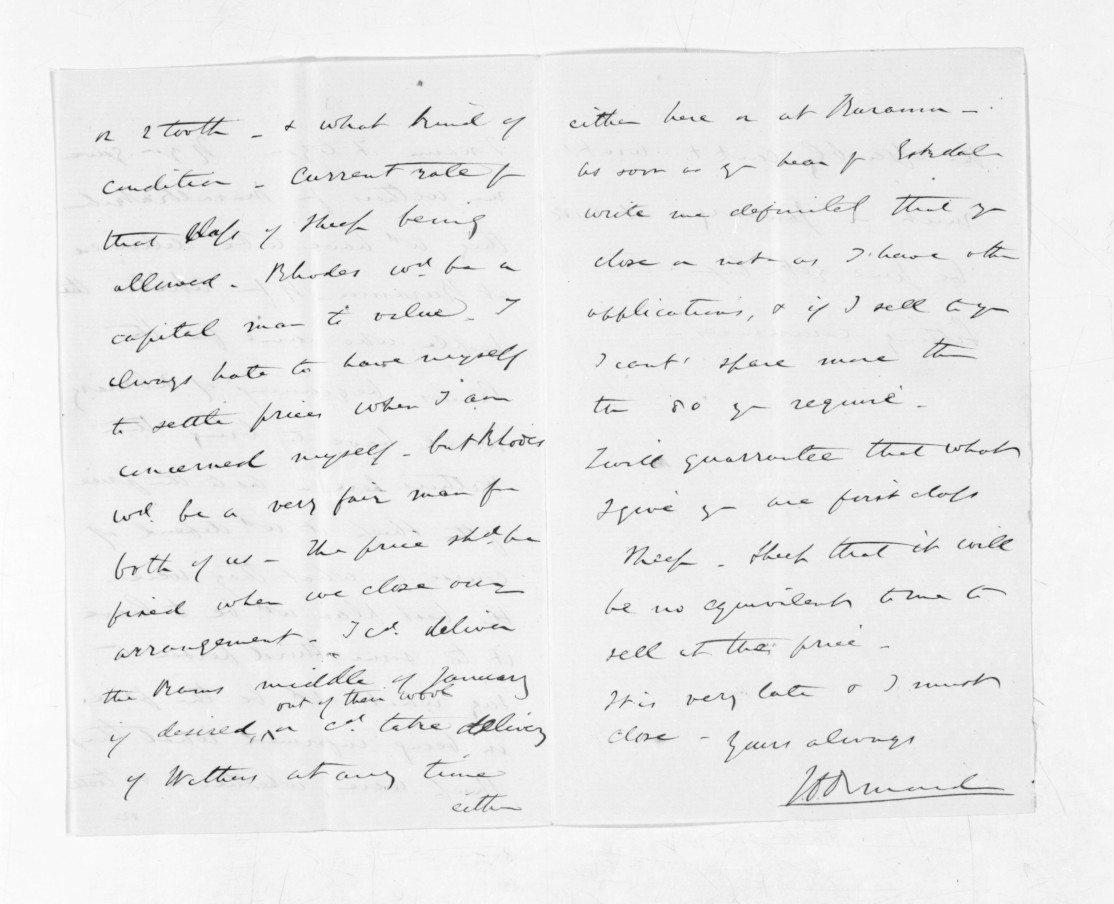 or 2 tooth - & what kind of
condition - current rate for
that class of Sheep being
allowed - Rhodes wd. be a
capital man to value. I
always hate to have myself
to settle prices when I am
concerned myself - but Rhodes
wd. be a very fair man for
both of us - The price shd. be
fixed when we close our
arrangement - I cd. deliver
the Rams middle of January
out of their wool
if desired, or cd. take delivery
of Wethers at any time
either
either here or at Buramu -
as soon as you hear fr Eskdale
write me definitely that you
close or not as I have other
applications, & if I sell to you
I can't spare more than
the 80 you require -
I will guarrantee that what
I give you are first class
Sheep - Sheep that it will
be no equivalent to me to
sell at the price -
It is very late & I must
close - Yours always
Ormond